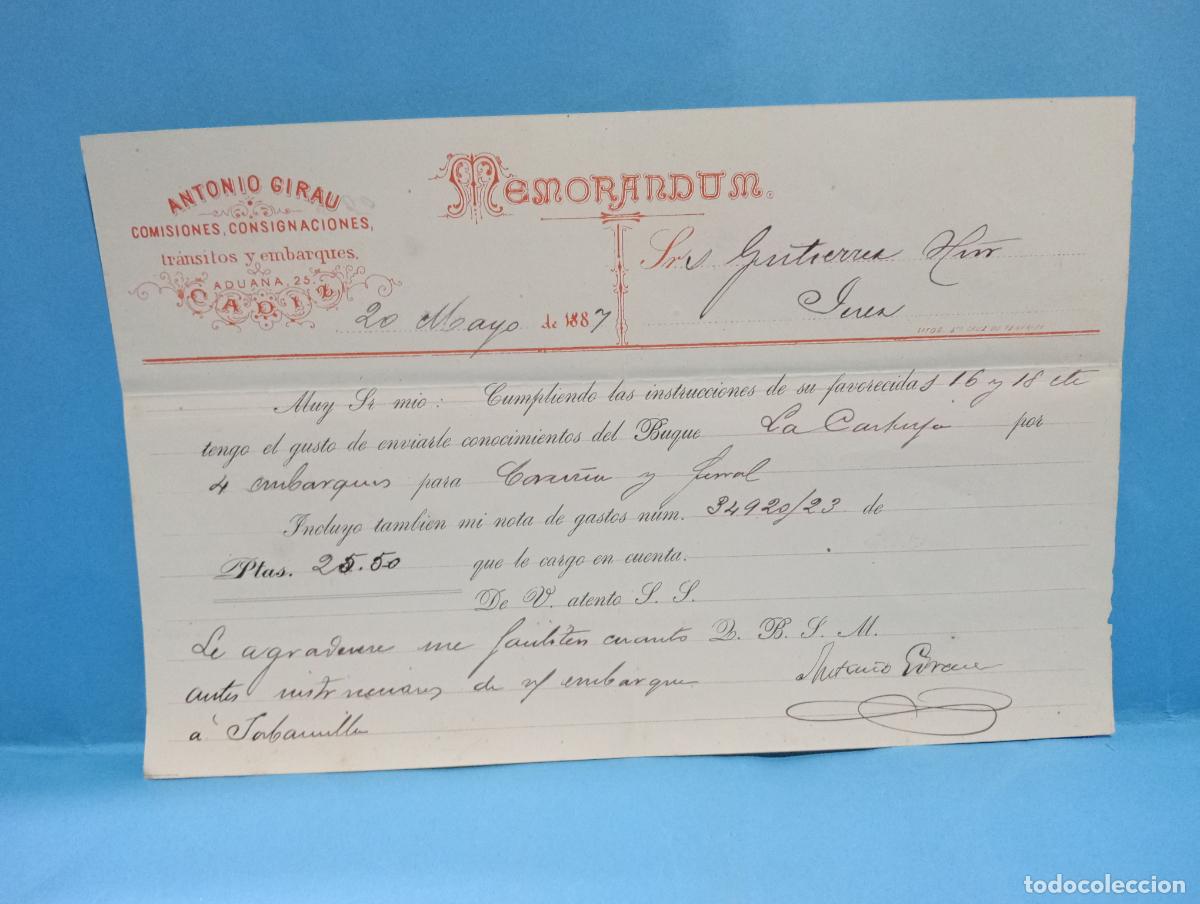 ANTONIO GIRAU
COMISIONES, CONSIGNACIONES,
tránsitos y embarques.
ADUANA, 25.
CADIZ
MEMORANDUM.
20 Mayo de 1887
Srs Gutierrez Hnos
Jerez
Muy Sr mio: Cumpliendo las instrucciones de su favorecidas 16 y 18 cte
tengo el gusto de enviarle conocimientos del Buque La Cartuja por
4 embarques para Coruña y Ferrol
Incluyo tambien mi nota de gastos núm. 34920/23 de
Ptas. 25.50 que le cargo en cuenta.
De V. atento S. S.
Q. B. S. M.
Antonio Girau
Le agradecere me faciliten cuanto
antes instrucciones de s/ embarque
á
todocoleccion